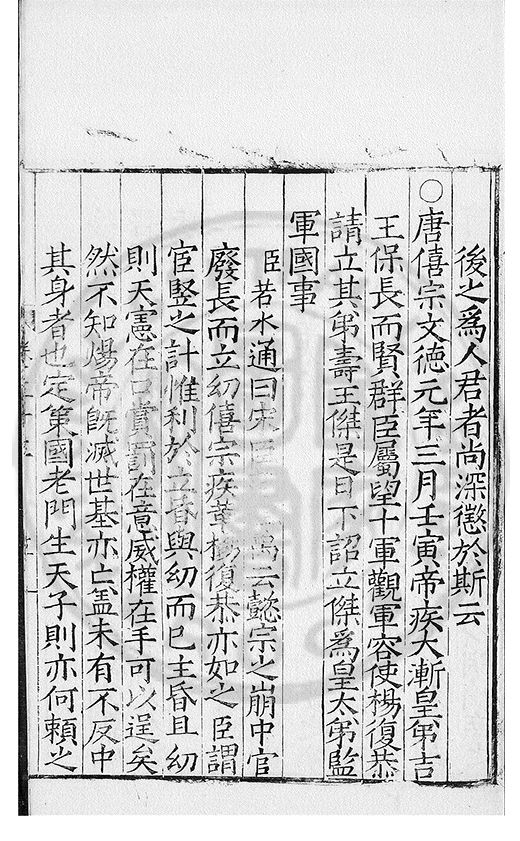 後之爲人君者尚深懲於斯云
○唐僖宗文德元年三月壬寅帝疾大漸皇第吉
王保長而賢群臣屬望十軍觀軍容使楊復恭
請立其弟壽王傑是日下詔立傑爲皇太弟監
軍國事
臣若水通曰宋臣 云懿宗之崩中官
廢長而立幼僖宗疾革楊復恭亦如之臣謂
宦豎之計惟利於立昏與幼而已主昏且幼
則天憲在口賞罰在意威權在手可以逞矣
然不知煬帝旣滅世基亦亡盖未有不反中
其身者也定策國老門生天子則亦何賴之